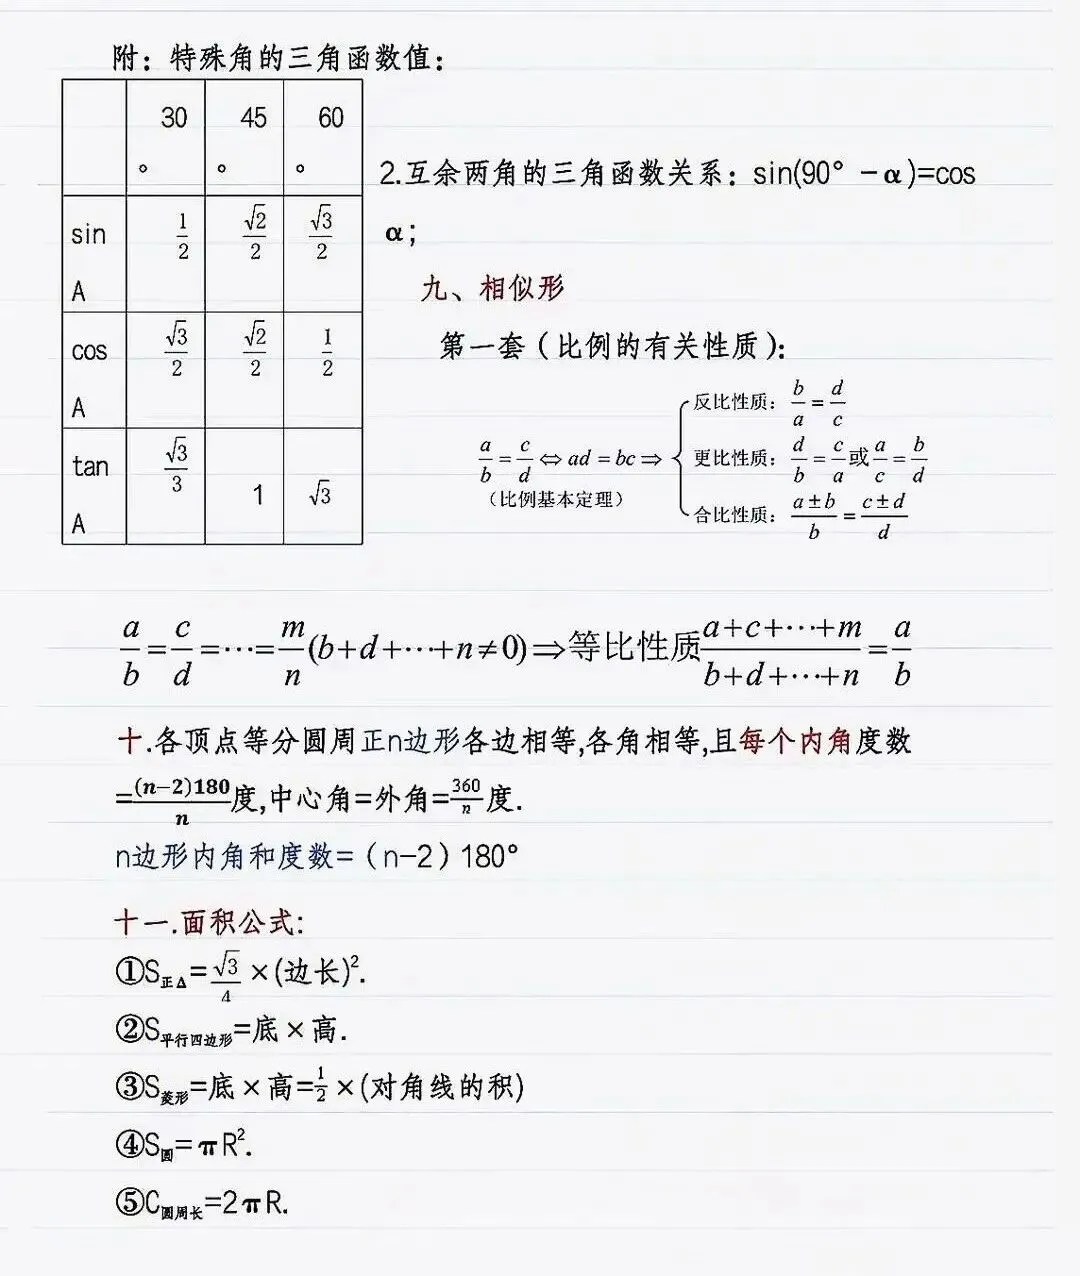 附：特殊角的三角函数值：
30° 45° 60°
sin A 1/2 √2/2 √3/2
cos A √3/2 √2/2 1/2
tan A √3/3 1 √3
2.互余两角的三角函数关系：sin(90°－α)=cos
α；
九、相似形
第一套（比例的有关性质）：
a/b=c/d⇔ad=bc⇒
（比例基本定理）
反比性质：b/a=d/c
更比性质：d/b=c/a或a/c=b/d
合比性质：(a±b)/b=(c±d)/d
a/b=c/d=⋯=m/n(b+d+⋯+n≠0)⇒等比性质(a+c+⋯+m)/(b+d+⋯+n)=a/b
十.各顶点等分圆周正n边形各边相等,各角相等,且每个内角度数
=(n−2)180/n度,中心角=外角=360/n度.
n边形内角和度数=（n−2）180°
十一.面积公式:
①S正Δ=√3/4×(边长)².
②S平行四边形=底×高.
③S菱形=底×高=1/2×(对角线的积)
④S圆=πR².
⑤C圆周长=2πR.